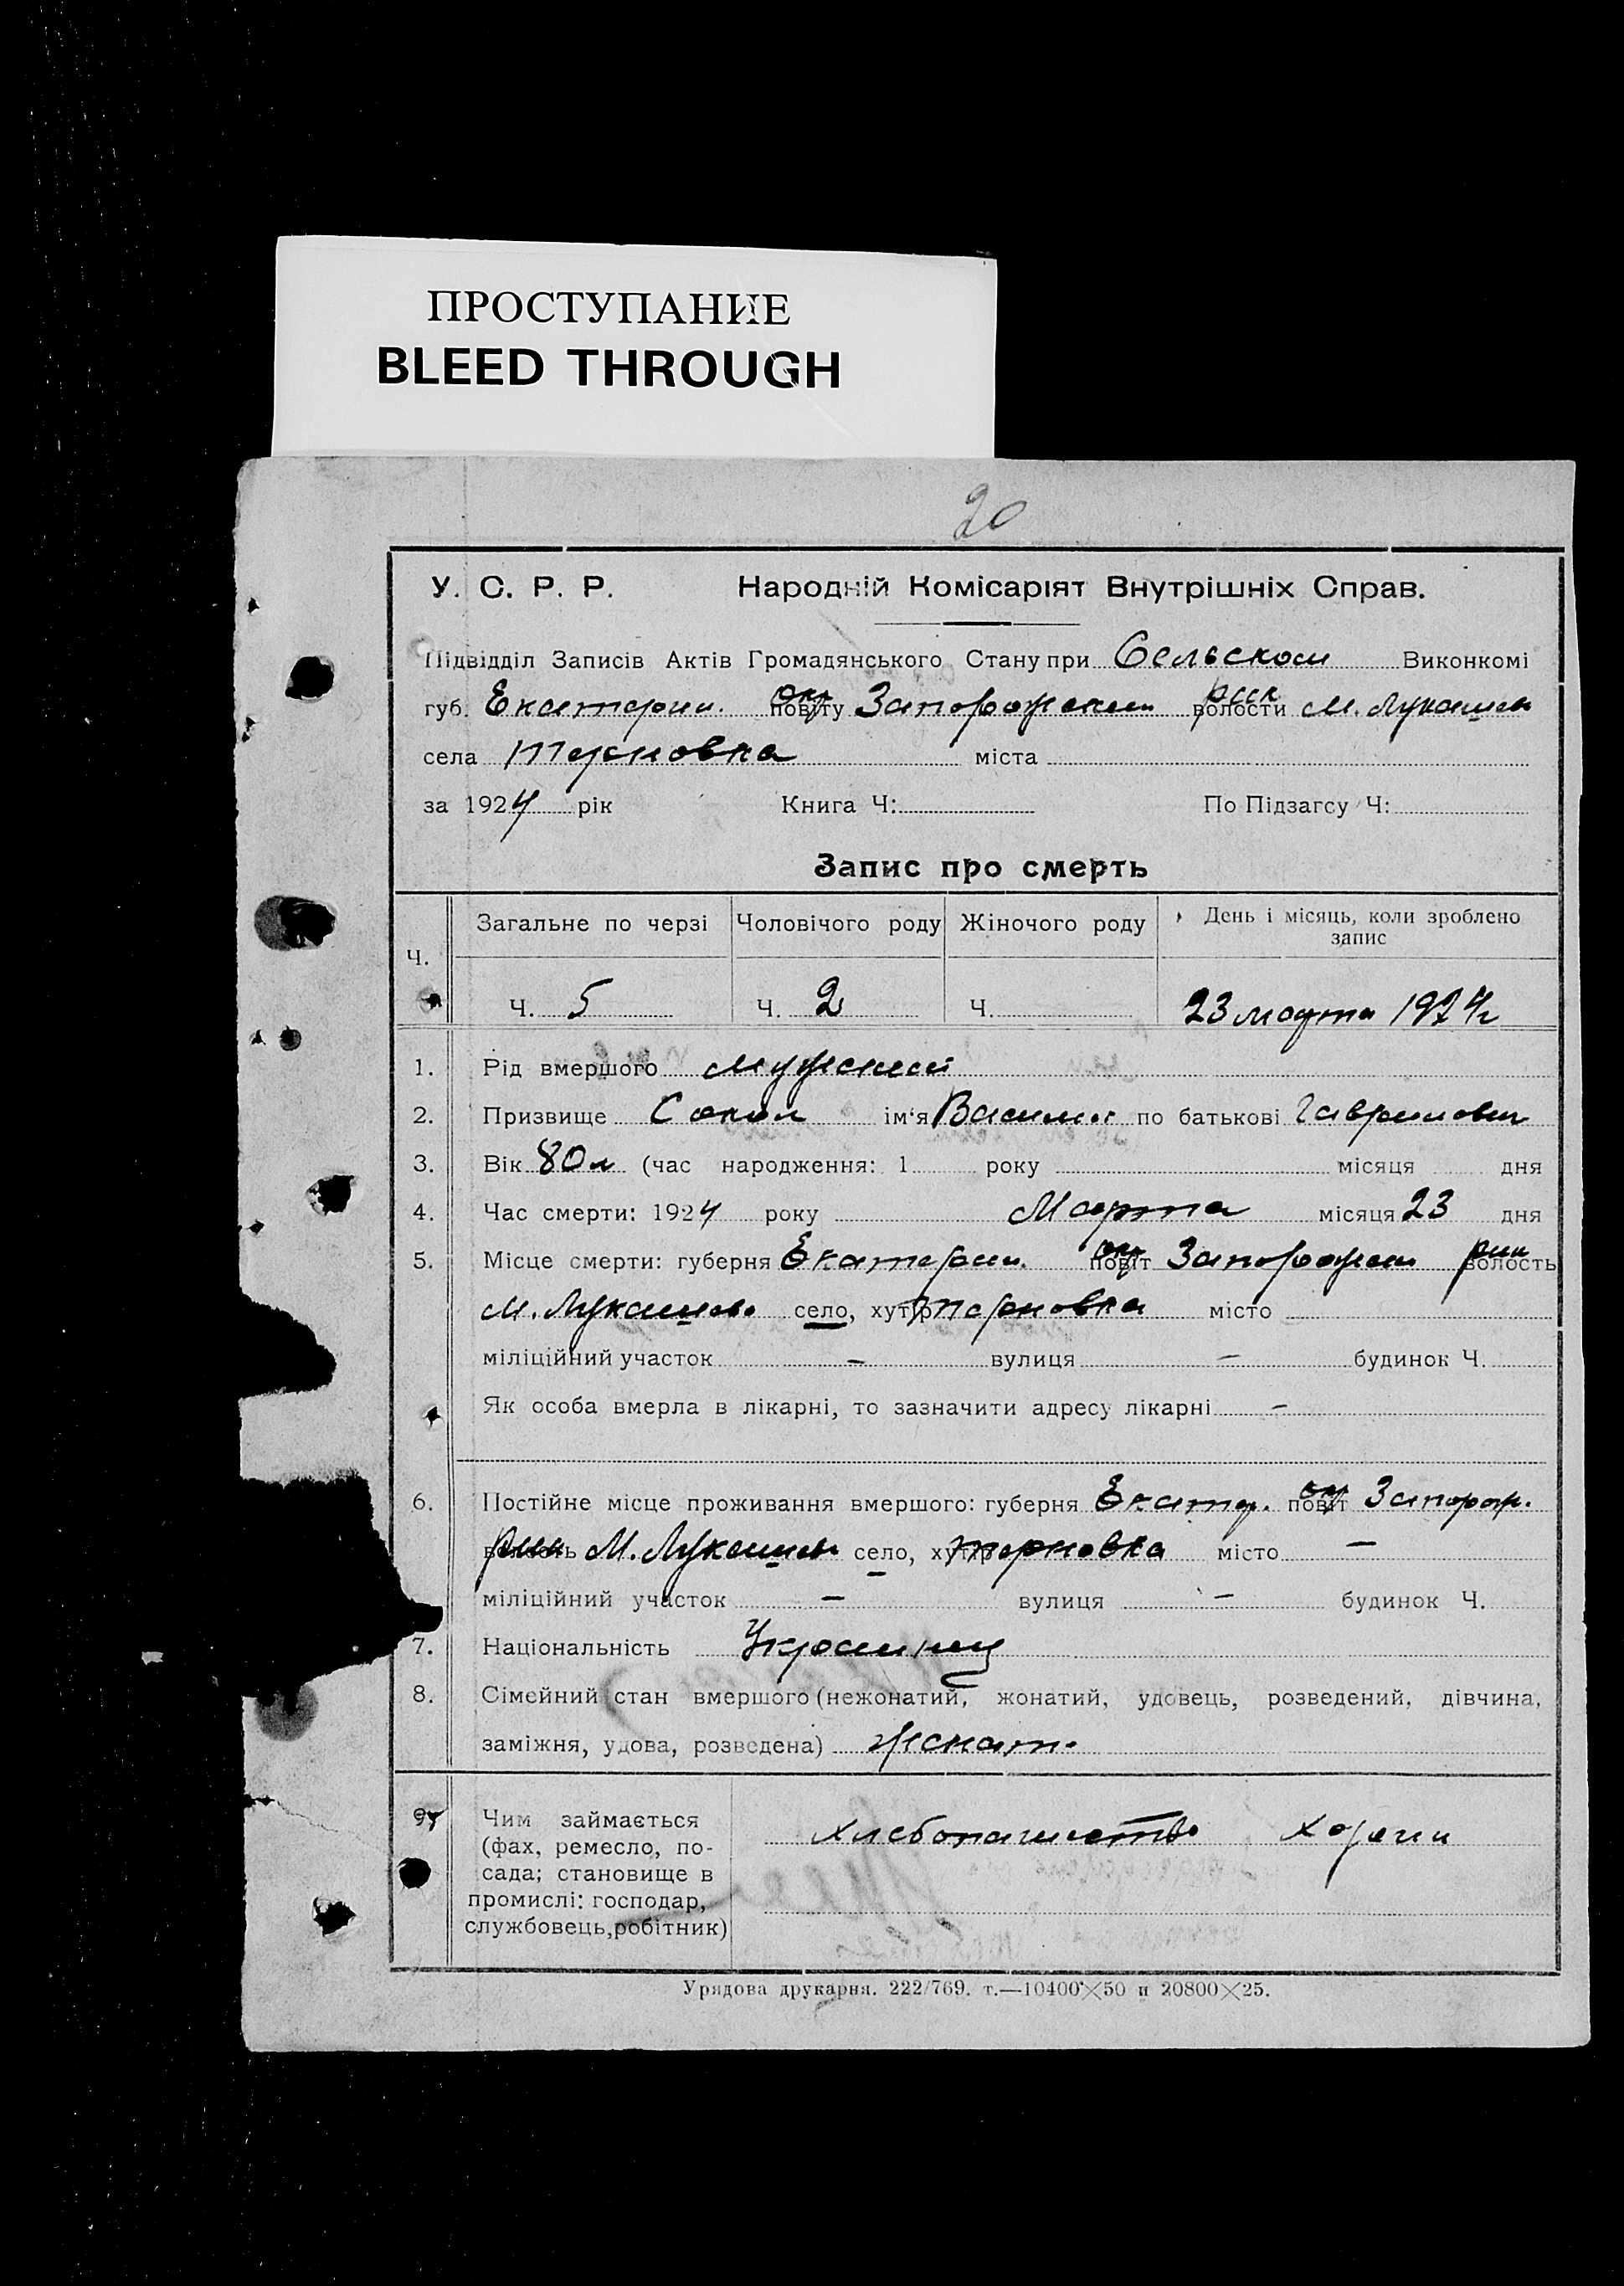 ПРОСТУПАНИЕ
BLEED THROUGH
20
У. С. Р. Р. Народній Комісаріят Внутрішніх Справ.
Підвідділ Записів Актів Громадянського Стану при Сельском Виконкомі
губ. Екатерин. повіту окр Запорожском волости М. Лукашев
села Терновка міста
за 1924 рік Книга Ч: По Підзагсу Ч:
Запис про смерть
Ч. Загальне по черзі Чоловічого роду Жіночого роду День і місяць, коли зроблено запис
Ч. 5 Ч. 2 Ч. 23 марта 1924 г
1. Рід вмершого мужской
2. Призвище Сокол ім'я Василий по батькові Гаврилович
3. Вік 80 л (час народження: 1 року місяця дня
4. Час смерти: 1924 року Марта місяця 23 дня
5. Місце смерти: губерня Екатерин. повіт окр Запорожск волость
М. Лукашево село, хутір Терновка місто
міліційний участок – вулиця – будинок Ч.
Як особа вмерла в лікарні, то зазначити адресу лікарні –
6. Постійне місце проживання вмершого: губерня Екатер. повіт ок Запорож.
волость М. Лукашев село, хутір Терновка місто –
міліційний участок – вулиця – будинок Ч.
7. Національність Украинец
8. Сімейний стан вмершого (нежонатий, жонатий, удовець, розведений, дівчина,
заміжня, удова, розведена) женат.
9. Чим займається хлебопашество
(фах, ремесло, по-
сада; становище в
промислі: господар,
службовець, робітник)
Урядова друкарня. 222/769. т.—10400×50 и 20800×25.